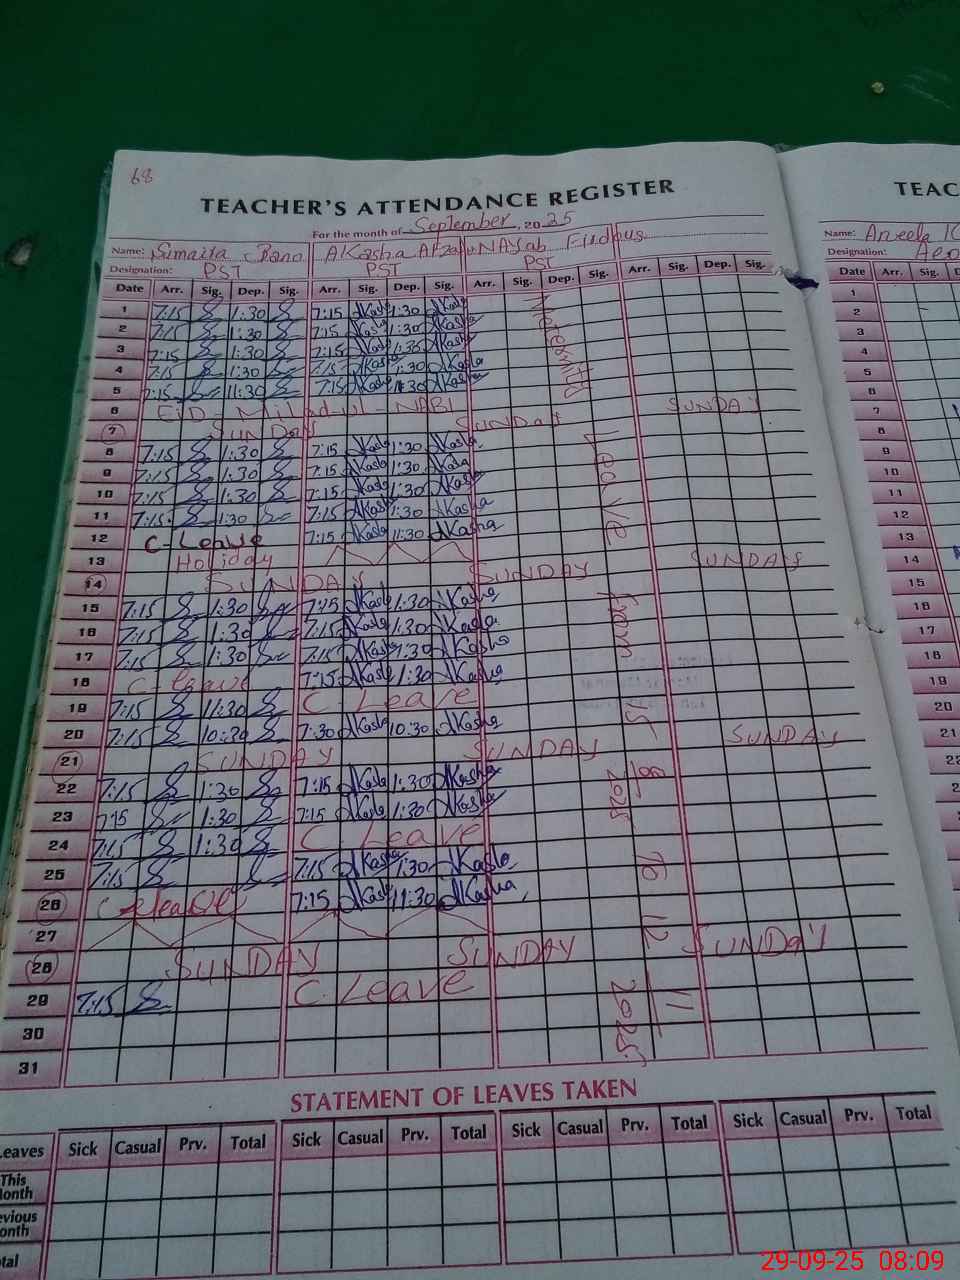 68
TEACHER'S ATTENDANCE REGISTER
For the month of September, 2025
Name: Sumaira Bano AKasha Afzal NAYab Firdous
Designation: PST PST PST
Date Arr. Sig. Dep. Sig. Arr. Sig. Dep. Sig. Arr. Sig. Dep. Sig. Arr. Sig. Dep. Sig.
1 7:15 1:30 7:15 AKasha 1:30 AKasha
2 7:15 1:30 7:15 AKasha 1:30 AKasha
3 7:15 1:30 7:15 AKasha 1:30 AKasha
4 7:15 1:30 7:15 AKasha 1:30 AKasha
5 7:15 11:30 7:15 AKasha 11:30 AKasha
6 EiD - Milad-ul - NABI
7 SUNDAY SUNDAY SUNDAY
8 7:15 1:30 7:15 AKasha 1:30 AKasha
9 7:15 1:30 7:15 AKasha 1:30 AKasha
10 7:15 1:30 7:15 AKasha 1:30 AKasha
11 7:15 1:30 7:15 AKasha 1:30 AKasha
12 C-Leave 7:15 AKasha 11:30 AKasha
13 Holiday
14 SUNDAY SUNDAY SUNDAY
15 7:15 1:30 7:15 AKasha 1:30 AKasha
16 7:15 1:30 7:15 AKasha 1:30 AKasha
17 7:15 1:30 7:15 AKasha 1:30 AKasha
18 C-leave 7:15 AKasha 1:30 AKasha
19 7:15 11:30 C-Leave
20 7:15 10:30 7:30 AKasha 10:30 AKasha
21 SUNDAY SUNDAY SUNDAY
22 7:15 1:30 7:15 AKasha 1:30 AKasha
23 7:15 1:30 7:15 AKasha 1:30 AKasha
24 7:15 1:30 C Leave
25 7:15 7:15 AKasha 1:30 AKasha
26 C-leave 7:15 AKasha 11:30 AKasha
27
28 SUNDAY SUNDAY SUNDAY
29 7:15 C-Leave
30
31
Maternity Leave from 15/08/2025 To 12/11/2025
STATEMENT OF LEAVES TAKEN
Leaves Sick Casual Prv. Total Sick Casual Prv. Total Sick Casual Prv. Total Sick Casual Prv. Total
This Month
evious onth
tal
TEAC
Name: Aneela
Designation:
Date Arr. Sig.
1
2
3
4
5
6
7
8
9
10
11
12
13
14
15
16
17
18
19
20
21
22
29-09-25 08:09